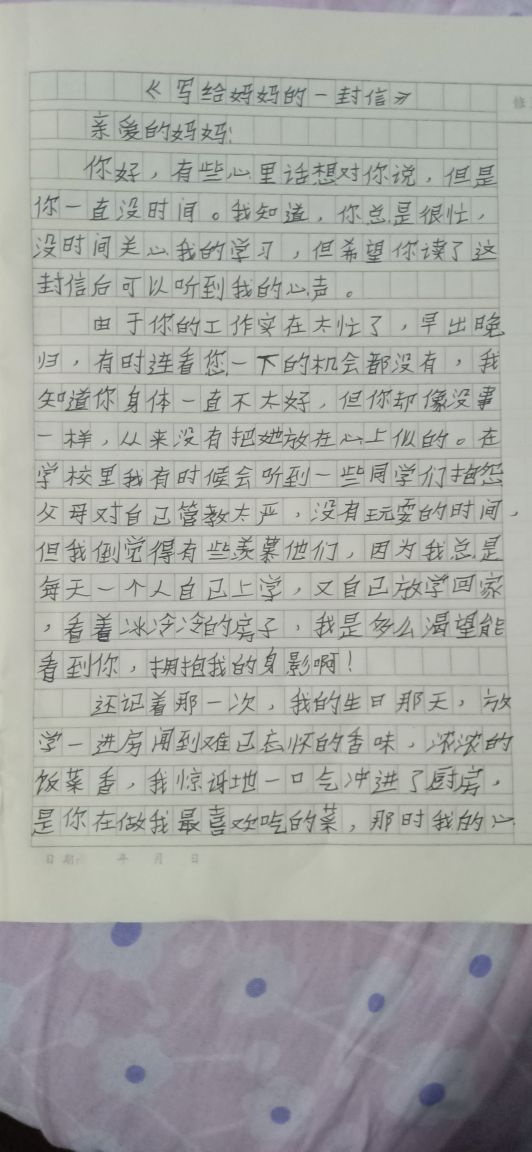 《写给妈妈的一封信》
亲爱的妈妈:
你好，有些心里话想对你说，但是
你一直没时间。我知道，你总是很忙，
没时间关心我的学习，但希望你读了这
封信后可以听到我的心声。
由于你的工作实在太忙了，早出晚
归，有时连看您一下的机会都没有，我
知道你身体一直不太好，但你却像没事
一样，从来没有把她放在心上似的。在
学校里我有时候会听到一些同学们抱怨
父母对自己管教太严，没有玩耍的时间，
但我倒觉得有些羡慕他们，因为我总是
每天一个人自己上学，又自己放学回家
，看着冰冷冷的房子，我是多么渴望能
看到你，拥抱我的身影啊！
还记着那一次，我的生日那天，放
学一进房闻到难已忘怀的香味，浓浓的
饭菜香，我惊讶地一口气冲进了厨房，
是你在做我最喜欢吃的菜，那时我的心
日期： 年 月 日
修